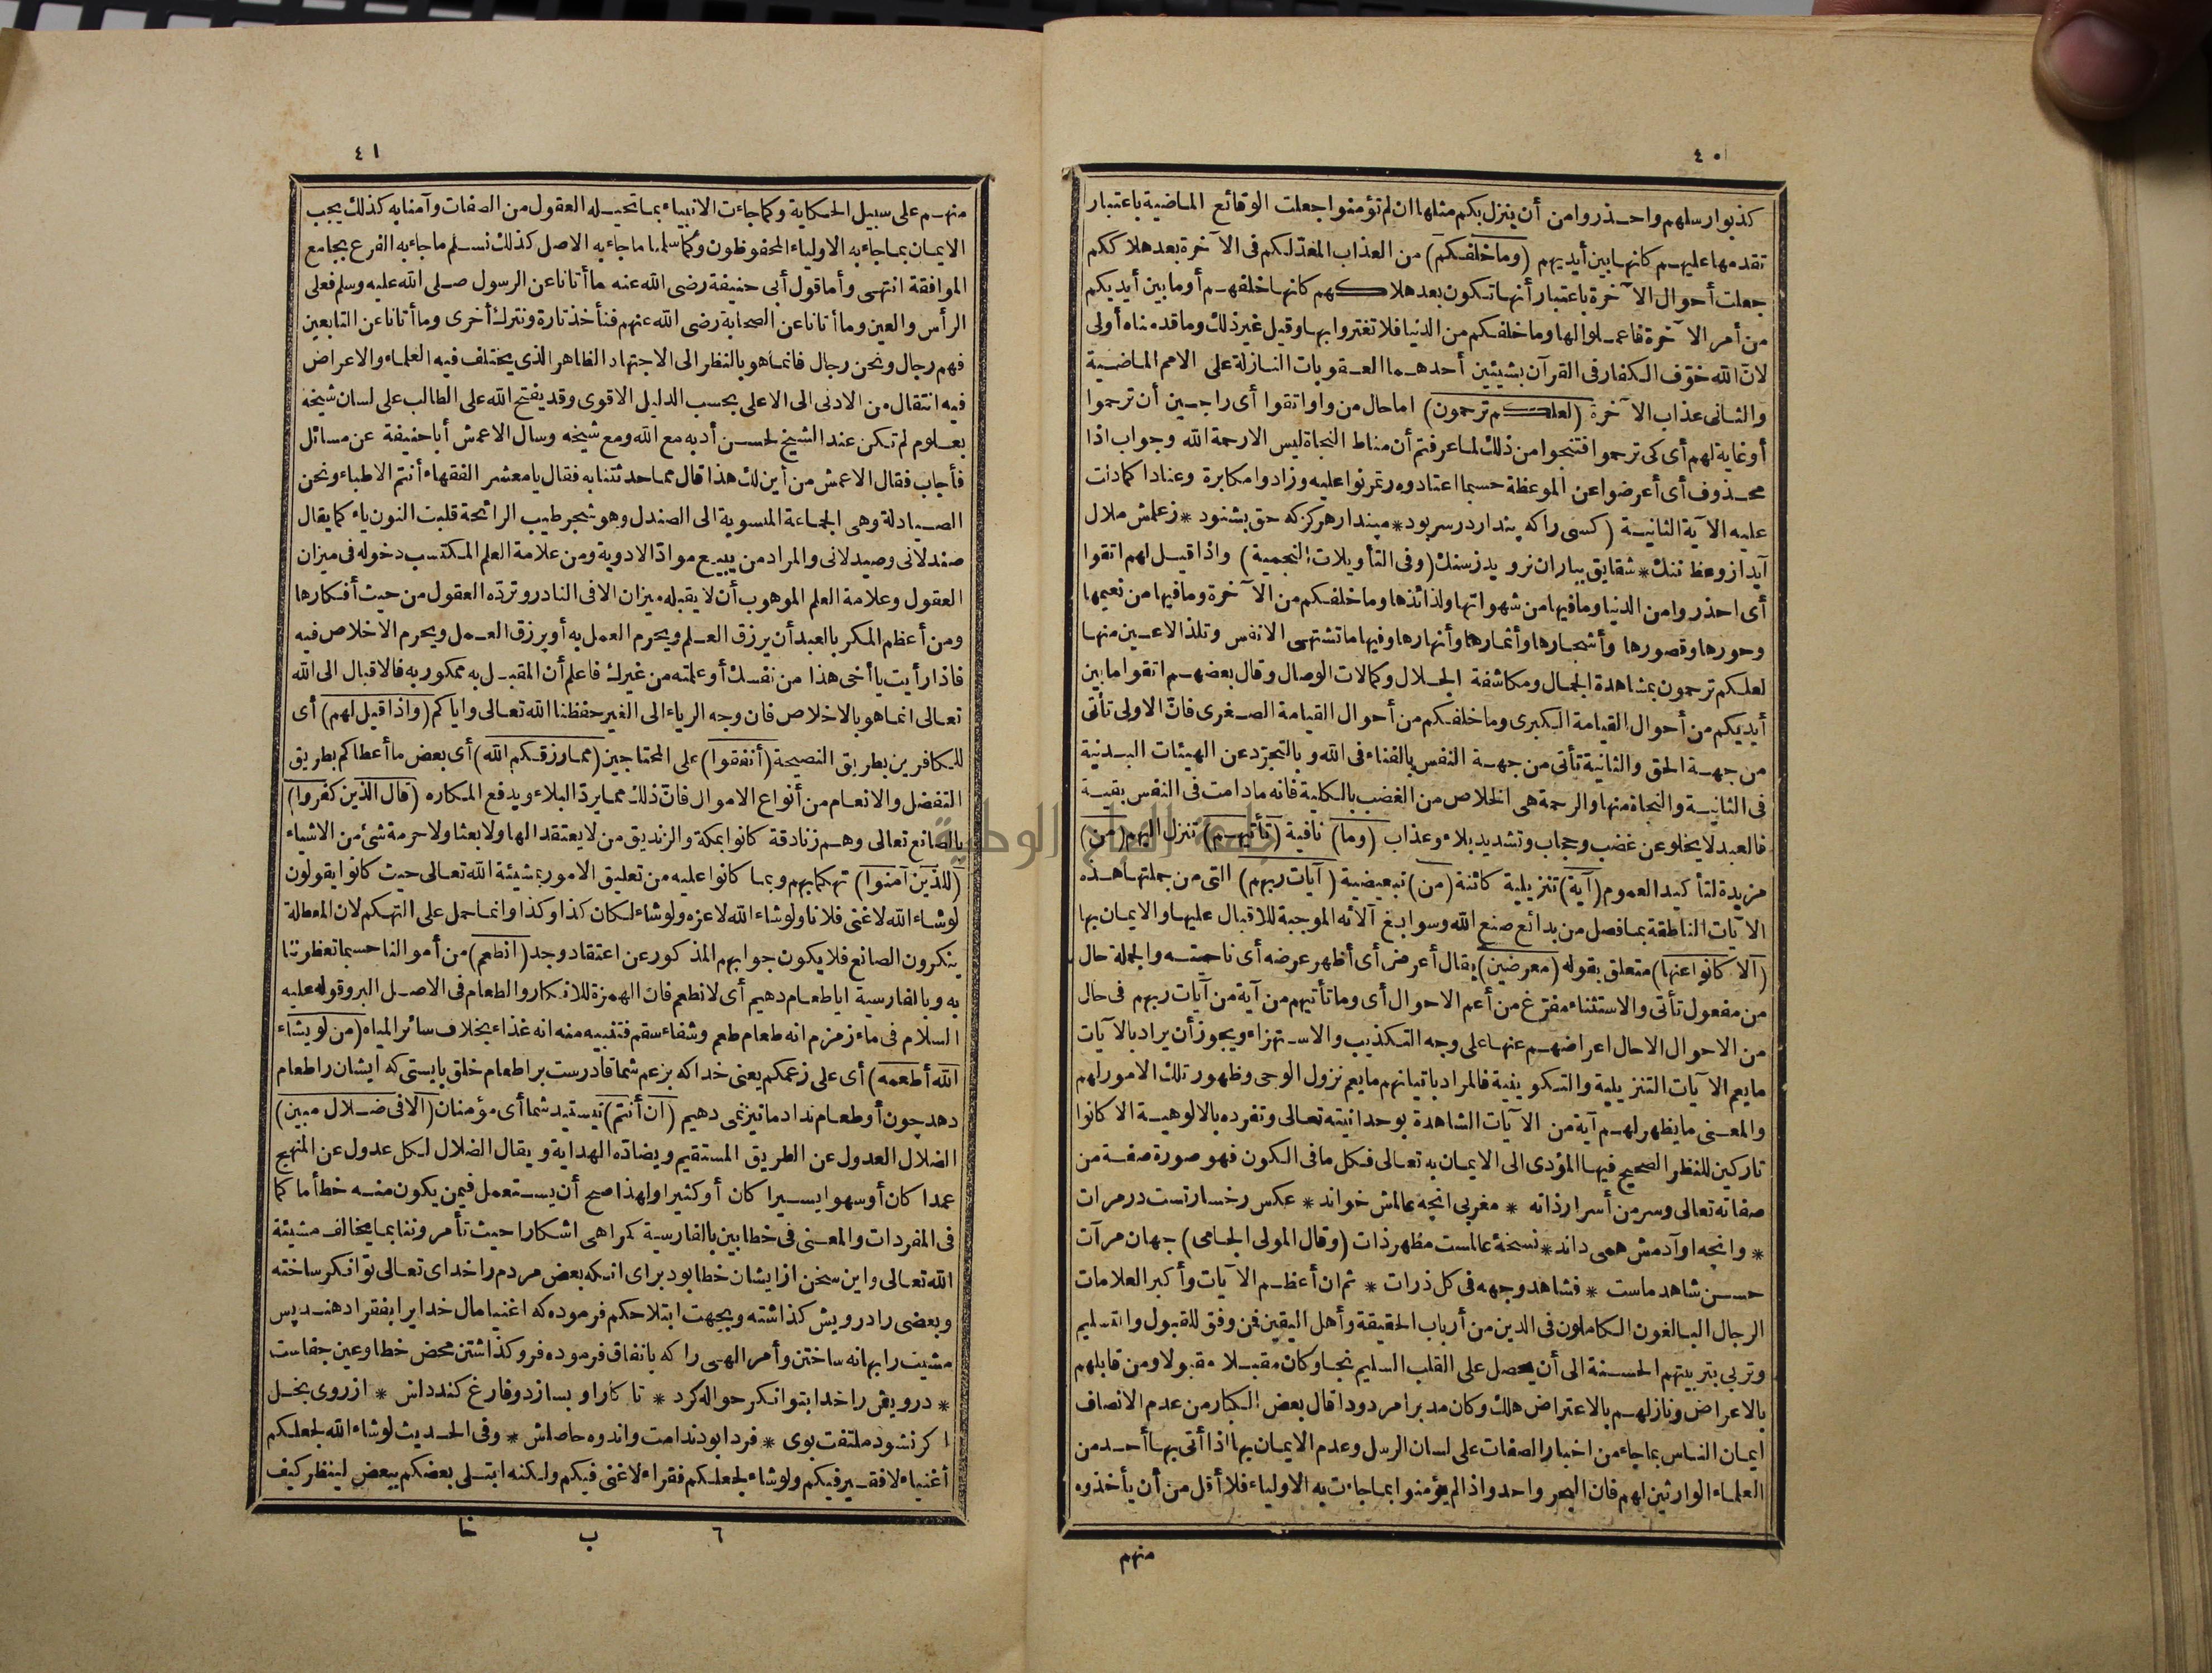 ٤٠
كذبوا رسلهم واحذروا من أن ينزل بكم مثلها ان لم تؤمنوا جعلت الوقائع الماضية باعتبار
تقدمها عليهم كانها بين أيديهم (وما خلفكم) من العذاب المعد لكم فى الآخرة بعد هلاككم
جعلت أحوال الآخرة باعتبار أنها تكون بعد هلاكهم كانها خلفهم أوما بين أيديكم
من أمر الآخرة فاعملوا لها وما خلفكم من الدنيا فلا تغتروا بها وقيل غير ذلك وما قدمناه أولى
لان الله خوّف الكفار فى القرآن بشيئين أحدهما العقوبات النازلة على الامم الماضية
والثانى عذاب الآخرة (لعلكم ترحمون) اما حال من واو اتقوا أى راجين أن ترحموا
أو غاية لهم أى كى ترحموا فتنجوا من ذلك لما عرفتم أن مناط النجاة ليس الا رحمة الله وجواب اذا
محذوف أى أعرضوا عن الموعظة حسبما اعتادوه وتمرنوا عليه وزادوا مكابرة وعنادا كما دلت
عليه الآية الثانية (كسى را كه پندار در سر بود * مپندار هركز كه حق بشنود * زعلمش ملال
آيد از وعظ ننك * شقايق بباران نرويد زسنك (وفى التأويلات النجمية) واذا قيل لهم اتقوا
أى احذروا من الدنيا وما فيها من شهواتها ولذائذها وما خلفكم من الآخرة وما فيها من نعيمها
وحورها وقصورها وأشجارها وأثمارها وأنهارها وفيها ما تشتهى الانفس وتلذ الاعين منها
لعلكم ترحمون بمشاهدة الجمال ومكاشفة الجلال وكمالات الوصال وقال بعضهم اتقوا ما بين
أيديكم من أحوال القيامة الكبرى وما خلفكم من أحوال القيامة الصغرى فانّ الاولى تأتى
من جهة الحق والثانية تأتى من جهة النفس بالفناء فى الله وبالتجرّد عن الهيئات البدنية
فى الثانية والنجاة منها والرحمة هى الخلاص من الغضب بالكلية فانه ما دامت فى النفس بقية
فالعبد لا يخلو عن غضب وحجاب وتشديد بلاء وعذاب (وما) نافية (تأتيهم) تنزل اليهم (من)
مزيدة لتأكيد العموم (آية) تنزيلية كائنة (من) تبعيضية (آيات ربهم) التى من جملتها هذه
الآيات الناطقة بما فصل من بدائع صنع الله وسوابغ آلائه الموجبة للاقبال عليها والايمان بها
(الا كانوا عنها) متعلق بقوله (معرضين) يقال أعرض أى أظهر عرضه أى ناحيته والجملة حال
من مفعول تأتى والاستثناء مفرّغ من أعم الاحوال أى وما تأتيهم من آية من آيات ربهم فى حال
من الاحوال الا حال اعراضهم عنها على وجه التكذيب والاستهزاء ويجوز أن يراد بالآيات
ما يعم الآيات التنزيلية والتكوينية فالمراد باتيانهم ما يعم نزول الوحى وظهور تلك الامور لهم
والمعنى ما يظهر لهم آية من الآيات الشاهدة بوحدانيته تعالى وتفرده بالالوهية الا كانوا
تاركين للنظر الصحيح فيها المؤدى الى الايمان به تعالى فكل ما فى الكون فهو صورة صفة من
صفاته تعالى وسر من أسرار ذاته * مغربى انچه عالمش خواند * عكس رخسارتست در مرات
* وانچه او آدمش همى داند * نسخهٔ عالمست مظهر ذات (وقال المولى الجامى) جهان مرآت
حسن شاهد ماست * فشاهد وجهه فى كل ذرات * ثم ان أعظم الآيات وأكبر العلامات
الرجال البالغون الكاملون فى الدين من أرباب الحقيقة وأهل اليقين فمن وفق للقبول والتسليم
وتربى بتربيتهم الحسنة الى أن يحصل على القلب السليم نجا وكان مقبلا مقبولا ومن قابلهم
بالاعراض ونازلهم بالاعتراض هلك وكان مدبرا مردودا قال بعض الكبار من عدم الانصاف
ايمان الناس بما جاء من اخبار الصفات على لسان الرسل وعدم الايمان بها اذا أتى بها أحد من
العلماء الوارثين لهم فان البحر واحد واذا لم يؤمنوا بما جاءت به الاولياء فلا أقل من أن يأخذوه
منهم
٤١
منهم على سبيل الحكاية وكما جاءت الانبياء بما تحيله العقول من الصفات وآمنا به كذلك يجب
الايمان بما جاء به الاولياء المحفوظون وكما سلمنا ما جاء به الاصل كذلك نسلم ما جاء به الفرع بجامع
الموافقة انتهى وأما قول أبى حنيفة رضى الله عنه ما أتانا عن الرسول صلى الله عليه وسلم فعلى
الرأس والعين وما أتانا عن الصحابة رضى الله عنهم فنأخذ تارة ونترك أخرى وما أتانا عن التابعين
فهم رجال ونحن رجال فانما هو بالنظر الى الاجتهاد الظاهر الذى يختلف فيه العلماء والاعراض
فيه انتقال من الادنى الى الاعلى بحسب الدليل الاقوى وقد يفتح الله على الطالب على لسان شيخه
بعلوم لم تكن عند الشيخ لحسن أدبه مع الله ومع شيخه وسأل الاعمش أبا حنيفة عن مسائل
فأجاب فقال الاعمش من أين لك هذا قال مما حدثتنا به فقال يا معشر الفقهاء أنتم الاطباء ونحن
الصيادلة وهى الجماعة المنسوبة الى الصندل وهو شجر طيب الرائحة قلبت النون ياء كما يقال
صندلانى وصيدلانى والمراد من يبيع موادّ الادوية ومن علامة العلم المكتسب دخوله فى ميزان
العقول وعلامة العلم الموهوب أن لا يقبله ميزان الا فى النادر وتردّه العقول من حيث أفكارها
ومن أعظم المكر بالعبد أن يرزق العلم ويحرم العمل به أو يرزق العمل ويحرم الاخلاص فيه
فاذا رأيت يا أخى هذا من نفسك أو علمته من غيرك فاعلم أن المقبل به ممكور به فالاقبال الى الله
تعالى انما هو بالاخلاص فان وجه الرياء الى الغير حفظنا الله تعالى واياكم (واذا قيل لهم) أى
للكافرين بطريق النصيحة (أنفقوا) على المحتاجين (مما رزقكم الله) أى بعض ما أعطاكم بطريق
التفضل والانعام من أنواع الاموال فانّ ذلك مما يردّ البلاء ويدفع المكاره (قال الذين كفروا)
بالصانع تعالى وهم زنادقة كانوا بمكة والزنديق من لا يعتقد الها ولا بعثا ولا حرمة شئ من الاشياء
(للذين آمنوا) تهكما بهم وبما كانوا عليه من تعليق الامور بمشيئة الله تعالى حيث كانوا يقولون
لو شاء الله لاغنى فلانا ولو شاء الله لاعزه ولو شاء لكان كذا وكذا وانما حمل على التهكم لان المعطلة
ينكرون الصانع فلا يكون جوابهم المذكور عن اعتقاد وجد (انطعم) من أموالنا حسبما تعظوننا
به وبالفارسية ايا طعام دهيم أى لا نطعم فان الهمزة للانكار والطعام فى الاصل البر وقوله عليه
السلام فى ماء زمزم انه طعام طعم وشفاء سقم فتنبيه منه انه غذاء بخلاف سائر المياه (من لو يشاء
الله أطعمه) أى على زعمكم يعنى خدا كه بزعم شما قادرست بر اطعام خلق بايستى كه ايشان را طعام
دهد چون أو طعام نداد ما نيز نمى دهيم (ان أنتم) نيستيد شما أى مؤمنان (الا فى ضلال مبين)
الضلال العدول عن الطريق المستقيم ويضادّه الهداية ويقال الضلال لكل عدول عن المنهج
عمدا كان أو سهوا يسيرا كان أو كثيرا ولهذا صح أن يستعمل فيمن يكون منه خطأ ما كما
فى المفردات والمعنى فى خطا بين بالفارسية كمراهى اشكارا حيث تأمروننا بما يخالف مشيئة
الله تعالى واين سخن از ايشان خطا بود براى انكه بعض مردم را خداى تعالى توانكر ساخته
وبعضى را درويش كذاشته وبجهت ابتلا حكم فرموده كه اغنيا مال خدايرا بفقرا دهند پس
مشيت را بهانه ساختن وأمر الهى را كه بانفاق فرموده فرو كذاشتن محض خطا وعين جفاست
* درويش را خدا بتوانكر حواله كرد * تا كار او بسازد وفارغ كند دلش * از روى بخل
اكر نشود ملتفت بوى * فردا بود ندامت واندوه حاصلش * وفى الحديث لو شاء الله لجعلكم
أغنياء لا فقير فيكم ولو شاء لجعلكم فقراء لا غنى فيكم ولكنه ابتلى بعضكم ببعض لينظر كيف
٦ ب حا